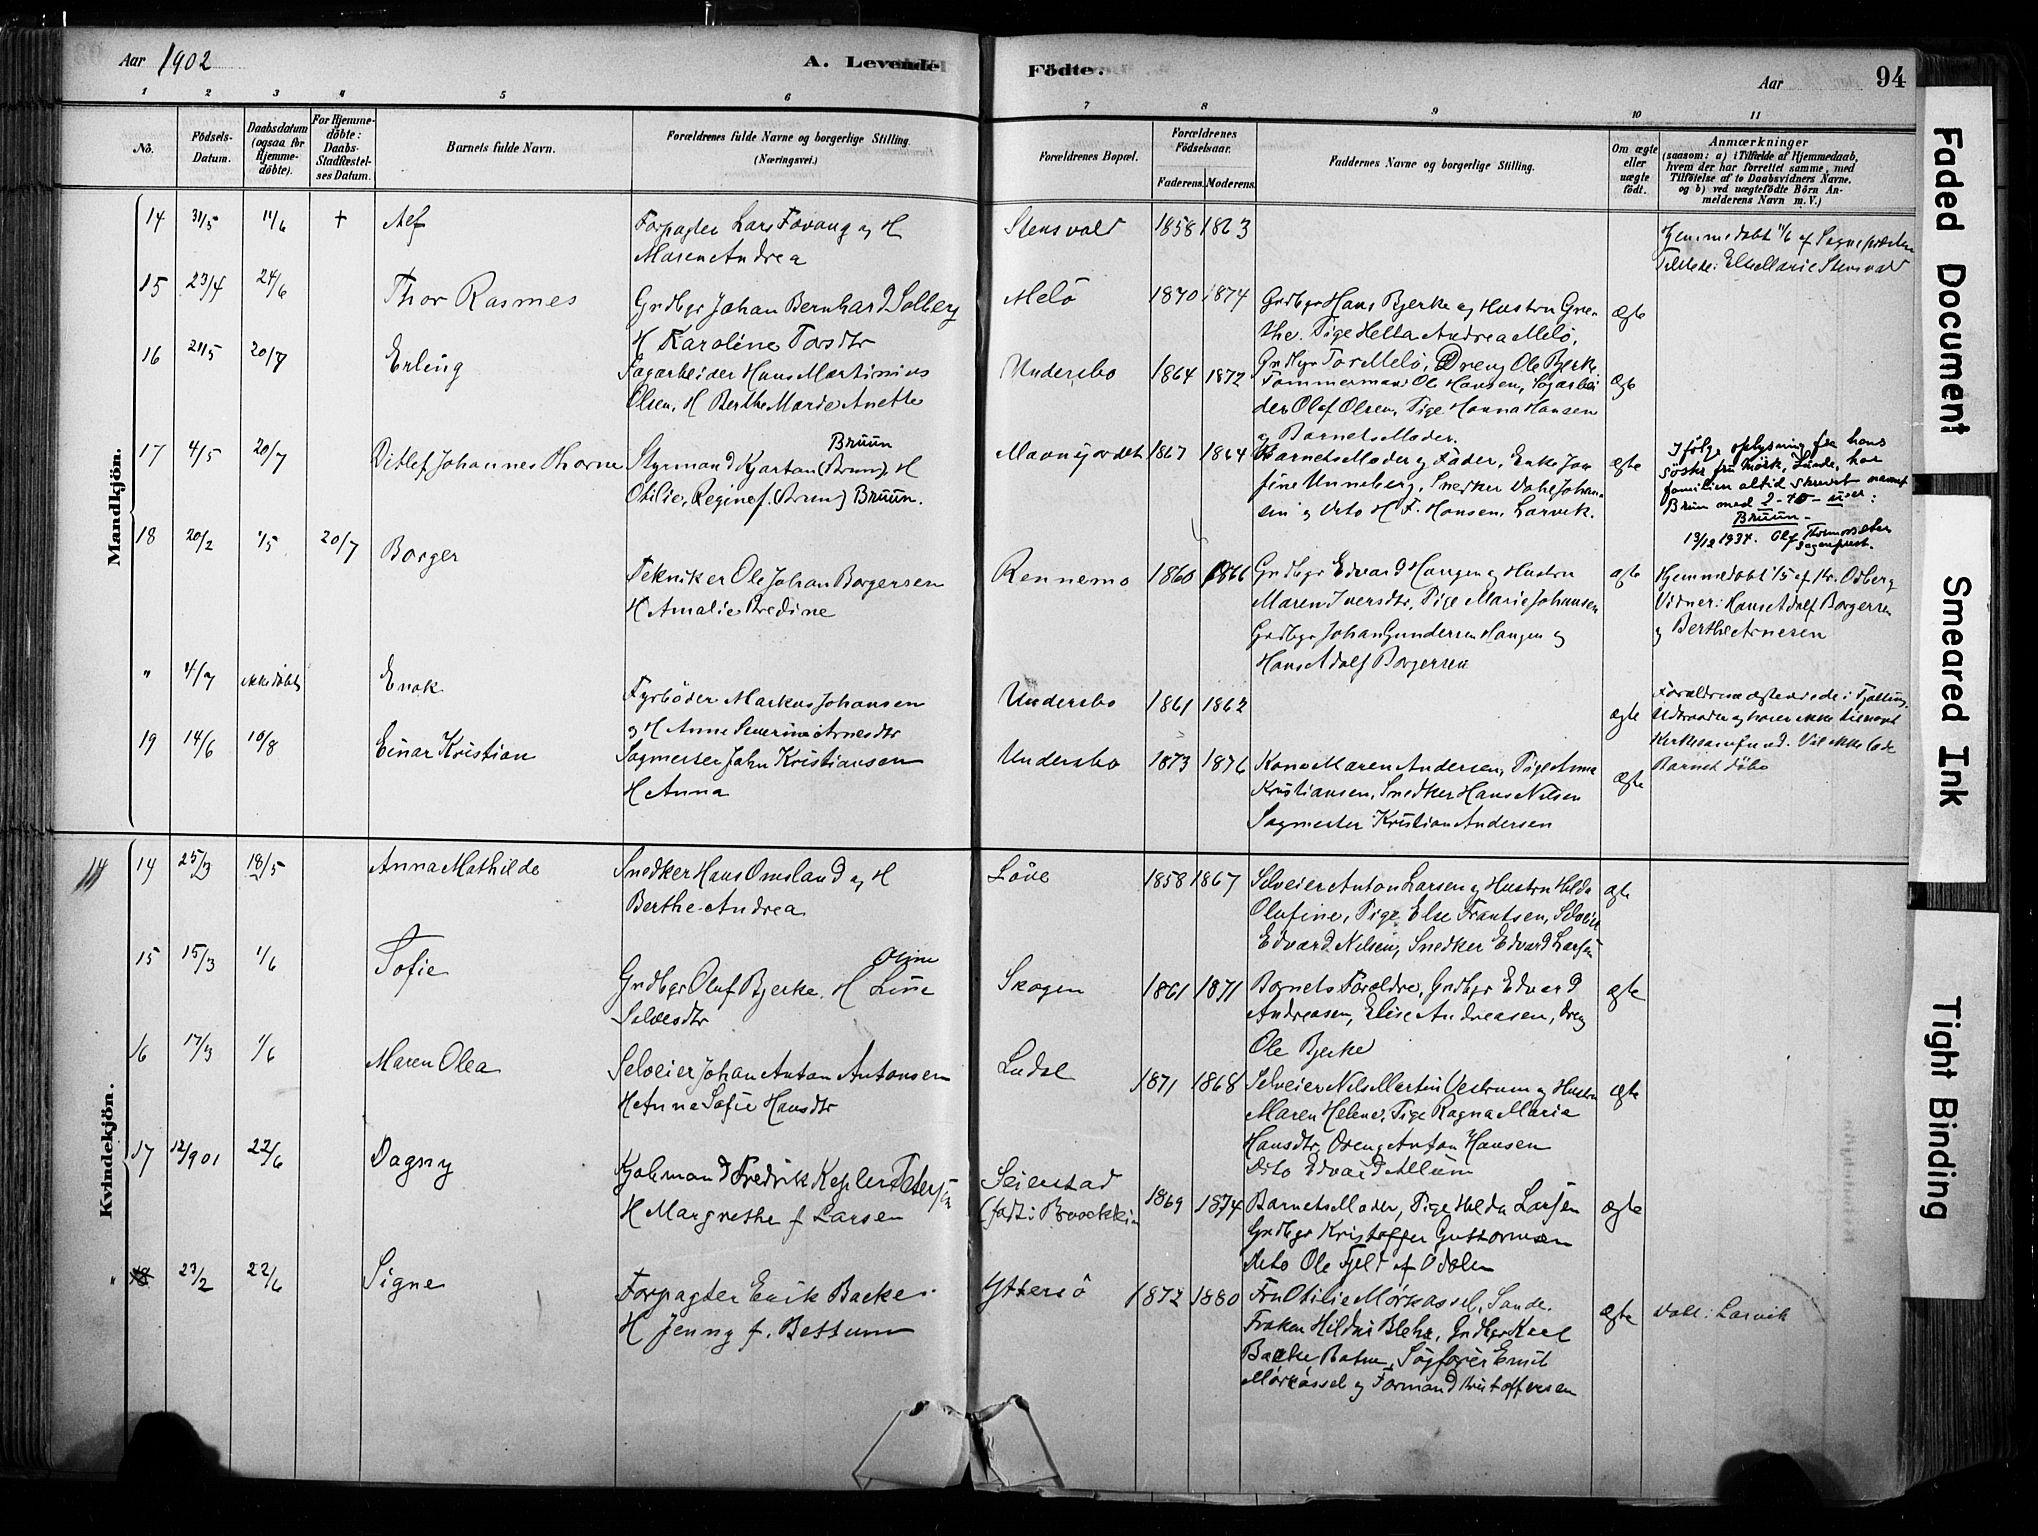 Aar 1902
A. Levende
Födte.
Aar
94
1 2 3 4 5 6 7 8 9 10 11
No.
Födsels-
Datum.
Daabsdatum
(ogsaa for
Hjemme-
döbte).
For Hjemme-
döbte:
Daabs-
Stadfæstel-
ses Datum.
Barnets fulde Navn.
Forældrenes fulde Navne og borgerlige Stilling.
(Næringsvei.)
Forældrenes Bopæl.
Forældrenes
Födselsaar.
Faderens. Moderens.
Faddernes Navne og borgerlige Stilling.
Om ægte
eller
uægte
födt.
Anmærkninger
(saasom: a) i Tilfælde af Hjemmedaab,
hvem der har forrettet samme, med
Tilföielse af to Daabsvidners Navne,
og b) ved uægtefödte Börn An-
melderens Navn m. V.)
Mandkjön.
14 31/5 11/6 + Alf
Forpagter Lars Fovang og H
Maren Andrea
Stensvold 1858 1863
Hjemmedøbt 11/6 af Sognepræsten
Tilstede: Else Marie Stensvold
15 23/4 24/6 Thor Rasmes
Grdbgr Johan Bernhard Solberg
H Karoline Torsdtr
Melö 1870 1874
Grdbgr Hans Bjerke og Hustru Gre-
the. Pige Helta Andrea Melö.
Grdbgr Tor Melö, Dreng Ole Bjerke
ægte
16 21/5 20/7 Erling
Sagarbeider Hans Martinius
Olsen, H Berthe Marie Anette
Undersbo 1864 1872
Tømmermand Ole Hansen, Sagarbei
der Olaf Olsen, Pige Hanna Hansen
og Barnets Moder.
ægte
17 4/5 20/7 Ditlef Johannes Thorne
Bruun
Styrmand Kjartan (Brun) H
Otilie, Regine f. (Brun) Bruun.
1867 1864
Barnets Moder og Fader, Enke Jo
fine Unneberg, Snedker Dahl Johan-
sen og dito H. F. Hansen, Larvik.
ægte
Ifölge oplysning fra hans
söster fru Mörk, Sande, har
familien altid skrevet navnet
Brun med 2 - to - u'er:
Bruun.
13/12 1937. Olf Thormodsæter
sogneprest.
18 20/2 1/5 20/7 Borger
Tekniker Ole Johan Borgersen
H Amalie Bredine
Rennemo 1860 1866
Grdbgr Edvard Haugen og Hustru
Maren Iversdtr, Pige Marie Johansen
Grdbgr Johan Gundersen Haugen og
Hans Adolf Borgersen
ægte
Hjemmedøbt 1/5 af Kr. Odberg
Vidner: Hans Adolf Borgersen
og Berthe Arnesen
" 4/7 ikke døbt Enok
Fyrbøder Markus Johansen
og H Anne Severine Arnesdtr
Undersbo 1861 1862
ægte
Forældrene ægteviede i Tjølling.
Udtraadte og hører ikke til noget
Kirkesamfund. Vil ikke lade
Barnet døbe
19 14/6 10/8 Einar Kristian
Sagmester John Kristiansen
H Anna
Undersbo 1873 1876
Kone Maren Andersen, Pige Anna
Kristiansen, Snedker Hans Nilsen
Sagmester Kristian Andersen
ægte
Kvindekjön.
14 14 25/3 18/5 Anna Mathilde
Snedker Hans Omsland og H
Berthe Andrea
Löve 1858 1867
Selveier Anton Larsen og Hustru Helda
Olufine, Pige Else Frantsen, Selveier
Edvard Nilsen, Snedker Edvard Larsen
ægte
15 15/3 1/6 Sofie
Oline
Grdbgr Oluf Bjerke. H Line
Salvesdtr
Skogen 1861 1871
Barnets Forældre, Grdbgr Edvard
Andreasen, Elise Andreasen, Dreng
Ole Bjerke
ægte
16 17/3 1/6 Maren Olea
Selveier Johan Anton Antonsen
H Anne Sofie Hansdtr
Ludal 1871 1868
Selveier Nils Martin Vestrum og Hustru
Maren Helene, Pige Ragna Maria
Hansdtr, Dreng Anton Hansen
Dito Edvard Allum
ægte
17 12/9 01 22/6 Dagny
Kjøbmand Fredrik Kepler Petersen
H Margrethe f Larsen
Seierstad
(født i Brooklin
1869 1874
Barnets Moder, Pige Helda Larsen
Grdbgr Kristoffer Guttormsen
dito Ole Fjeld af Odalen
ægte
" 18 23/2 22/6 Signe
Forpagter Erik Backe.
H Jenny f. Bettum
Ytteröö 1872 1880
Fru Otilie Mørkassel, Sande.
Frøken Hilda Blehr, Grdbgr Karl
Backe Botne, Sagfører Emil
Mørkassel og Formand Kristoffersen
ægte
Vakl: Larvik
Faded Document
Smeared Ink
Tight Binding